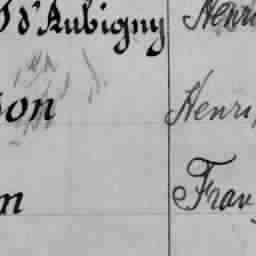 d'Aubigny Henri
son Henri
n Fran